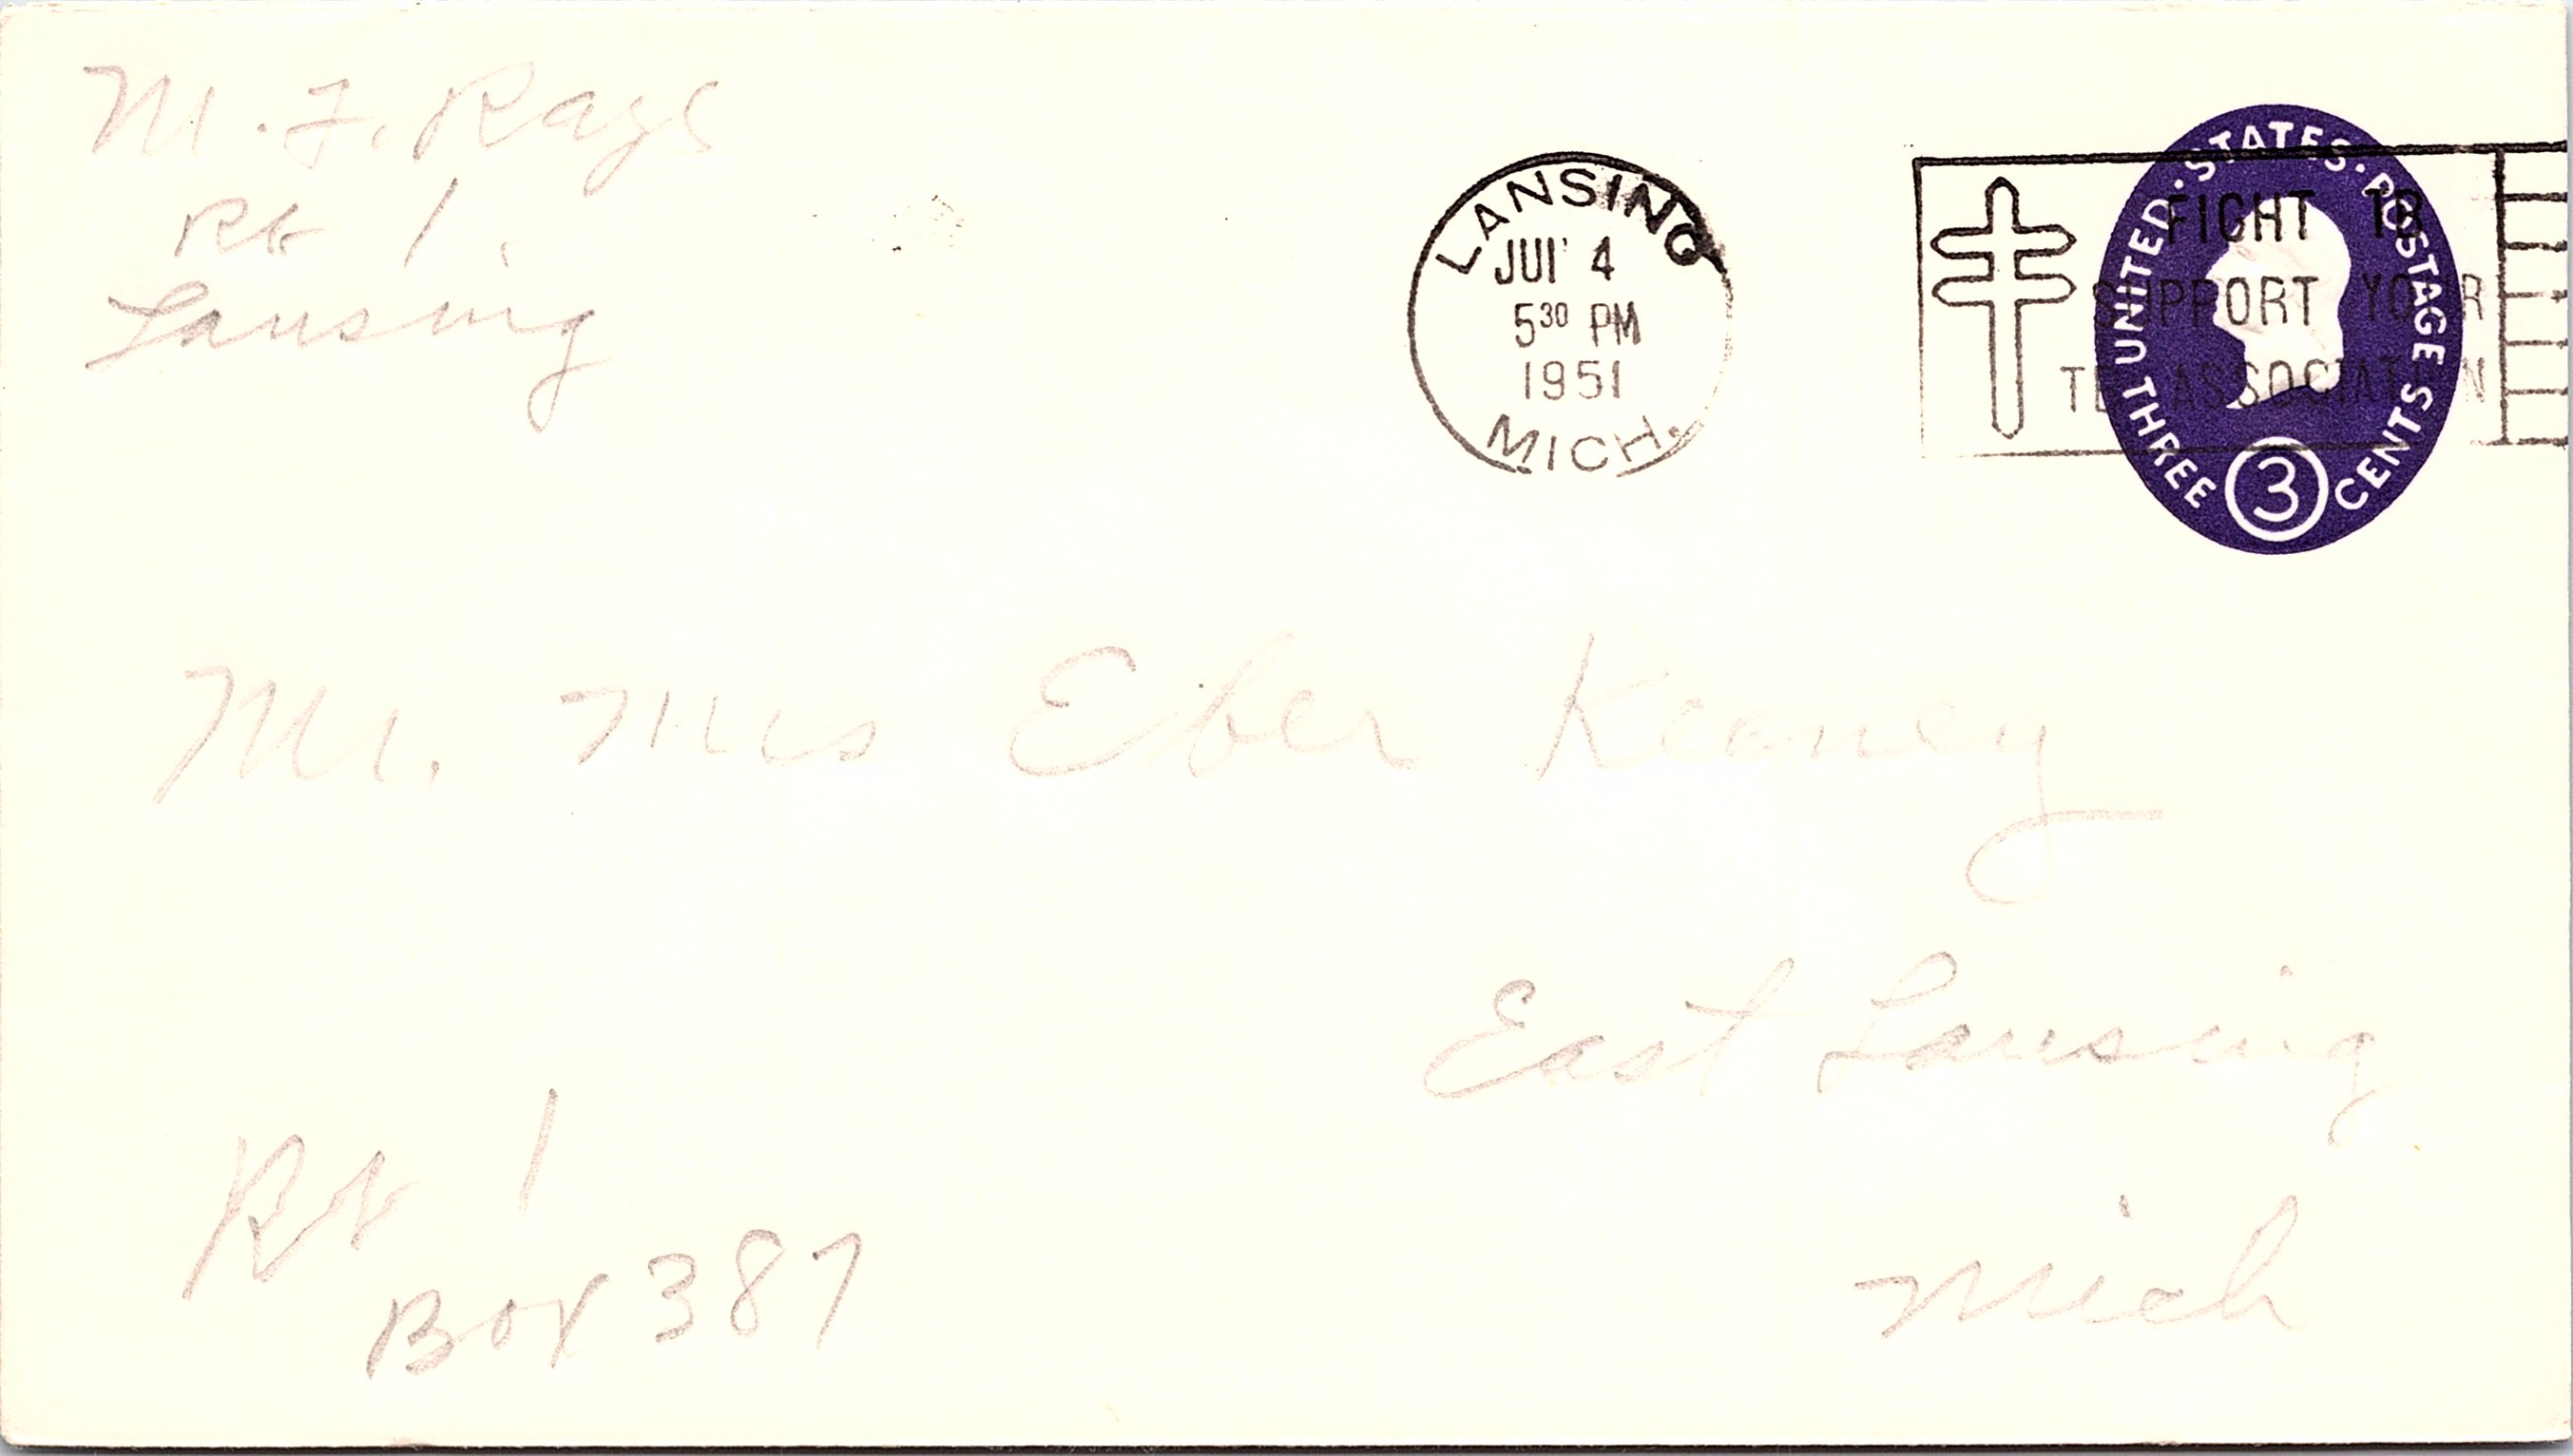 M. F. Rays
Rt 1.
Lansing
LANSING
JUL 4
5 30 PM
1951
MICH.
FIGHT TB
SUPPORT YOUR
TB ASSOCIATION
UNITED · STATES · POSTAGE
THREE CENTS
3
Mr. Mrs Eber Keeney
East Lansing
Mich
Rt 1
Box 387